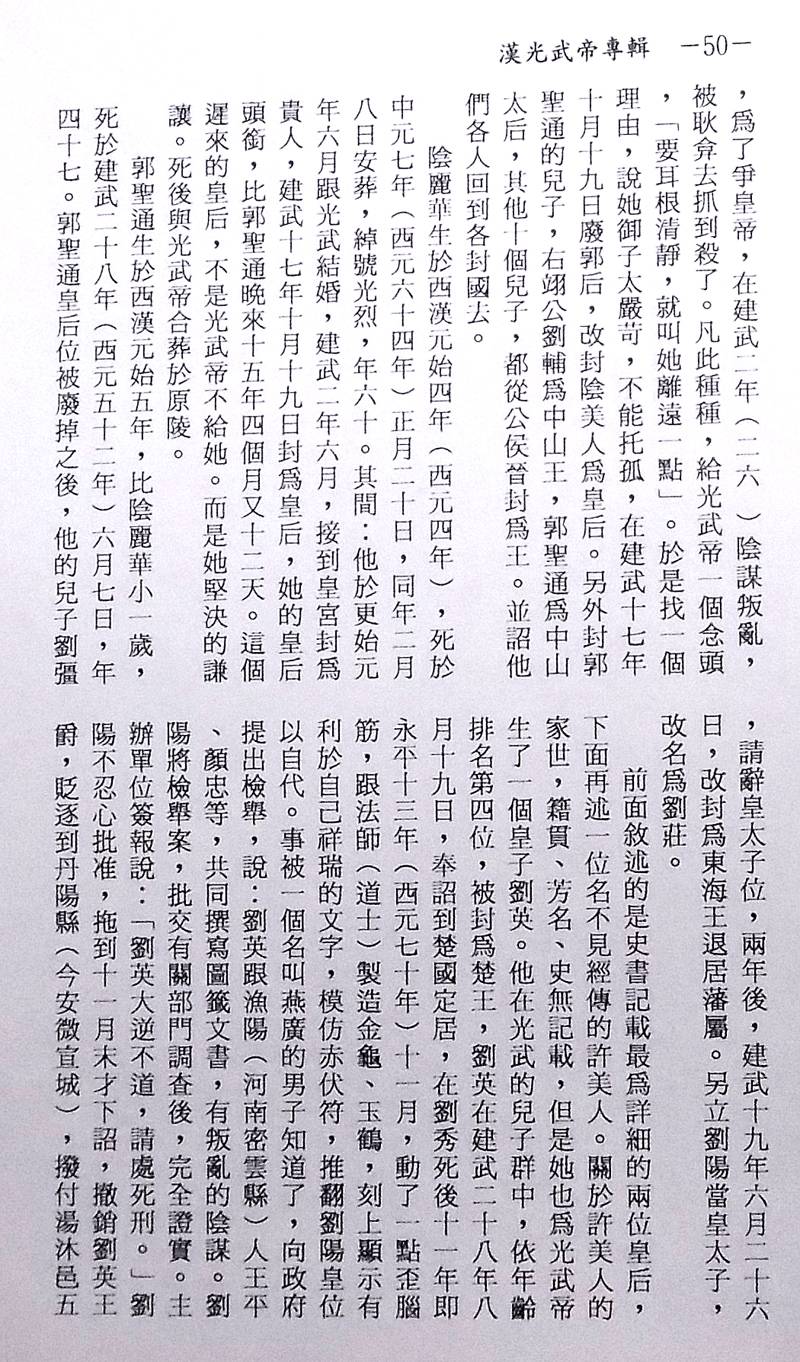 漢光武帝專輯 －50－
，為了爭皇帝，在建武二年（二六）陰謀叛亂，
被耿弇去抓到殺了。凡此種種，給光武帝一個念頭
，「要耳根清靜，就叫她離遠一點」。於是找一個
理由，說她御子太嚴苛，不能托孤，在建武十七年
十月十九日廢郭后，改封陰美人為皇后。另外封郭
聖通的兒子，右翊公劉輔為中山王，郭聖通為中山
太后，其他十個兒子，都從公侯晉封為王。並詔他
們各人回到各封國去。
陰麗華生於西漢元始四年（西元四年），死於
中元七年（西元六十四年）正月二十日，同年二月
八日安葬，綽號光烈，年六十。其間：他於更始元
年六月跟光武結婚，建武二年六月，接到皇宮封為
貴人，建武十七年十月十九日封為皇后，她的皇后
頭銜，比郭聖通晚來十五年四個月又十二天。這個
遲來的皇后，不是光武帝不給她。而是她堅決的謙
讓。死後與光武帝合葬於原陵。
郭聖通生於西漢元始五年，比陰麗華小一歲，
死於建武二十八年（西元五十二年）六月七日，年
四十七。郭聖通皇后位被廢掉之後，他的兒子劉彊
，請辭皇太子位，兩年後，建武十九年六月二十六
日，改封為東海王退居藩屬。另立劉陽當皇太子，
改名為劉莊。
前面敘述的是史書記載最為詳細的兩位皇后，
下面再述一位名不見經傳的許美人。關於許美人的
家世，籍貫、芳名、史無記載，但是她也為光武帝
生了一個皇子劉英。他在光武的兒子群中，依年齡
排名第四位，被封為楚王，劉英在建武二十八年八
月十九日，奉詔到楚國定居，在劉秀死後十一年即
永平十三年（西元七十年）十一月，動了一點歪腦
筋，跟法師（道士）製造金龜、玉鶴，刻上顯示有
利於自己祥瑞的文字，模仿赤伏符，推翻劉陽皇位
以自代。事被一個名叫燕廣的男子知道了，向政府
提出檢舉，說：劉英跟漁陽（河南密雲縣）人王平
、顏忠等，共同撰寫圖籤文書，有叛亂的陰謀。劉
陽將檢舉案，批交有關部門調查後，完全證實。主
辦單位簽報說：「劉英大逆不道，請處死刑。」劉
陽不忍心批准，拖到十一月末才下詔，撤銷劉英王
爵，貶逐到丹陽縣（今安徽宣城），撥付湯沐邑五